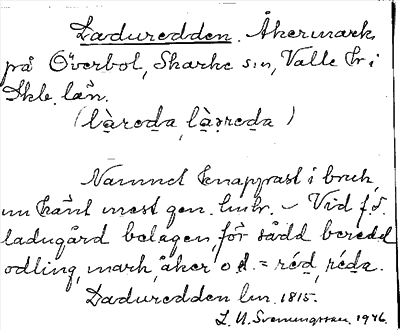 Laduredden. Åkermark
på Överbol, Skarke s:n, Valle hr i
Skb. län.
(làreda, làəreda)
Namnet knappast i bruk,
nu känt mest gen. hndr. – Vid f.d.
ladugård belagen, för sådd beredd
odling, mark, åker o d. = réd, réda.
Laduredden lm. 1815.
L. N. Svenungsson. 1946.